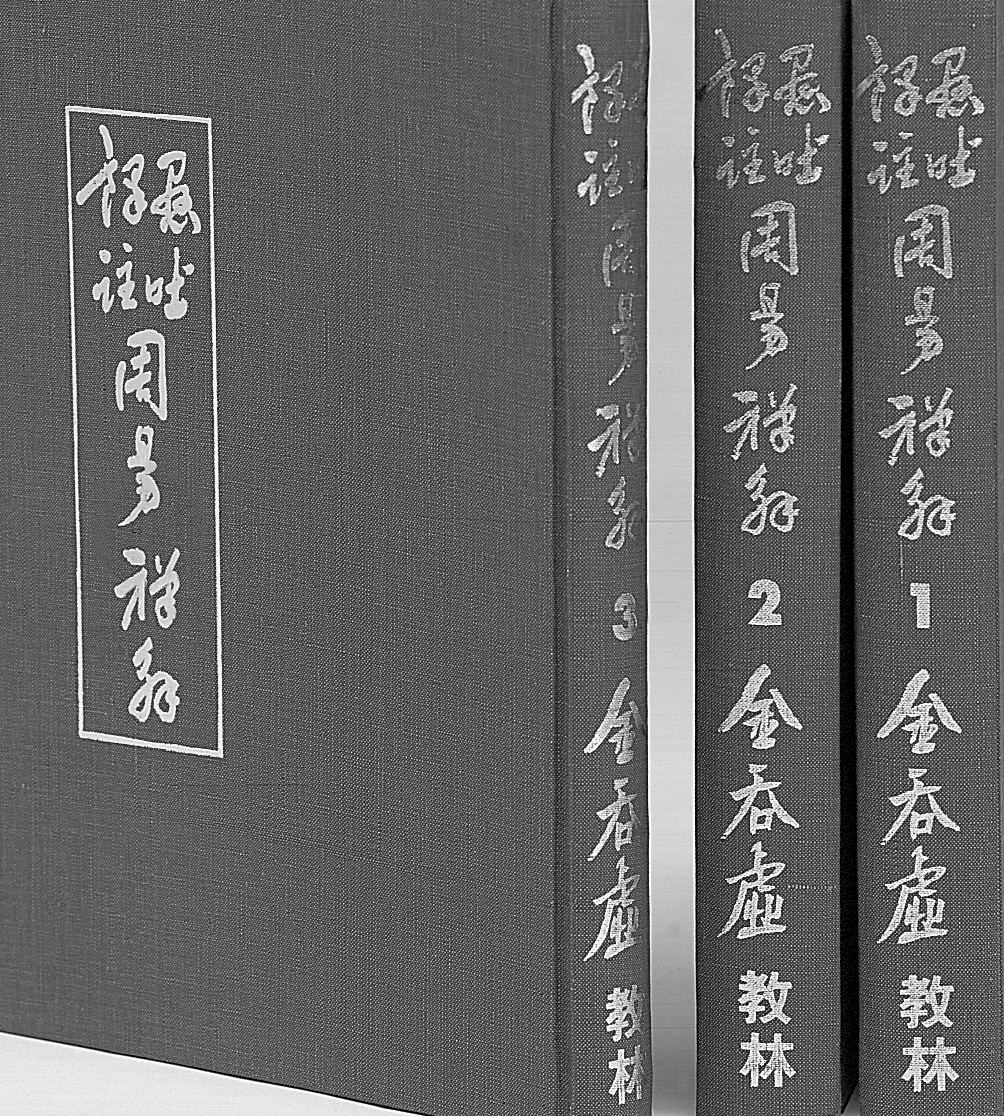 懸吐
譯註
周易禪解
1
金呑虛
教林
懸吐
譯註
周易禪解
2
金呑虛
教林
譯註
周易禪解
3
金呑虛
教林
懸吐
譯註
周易禪解